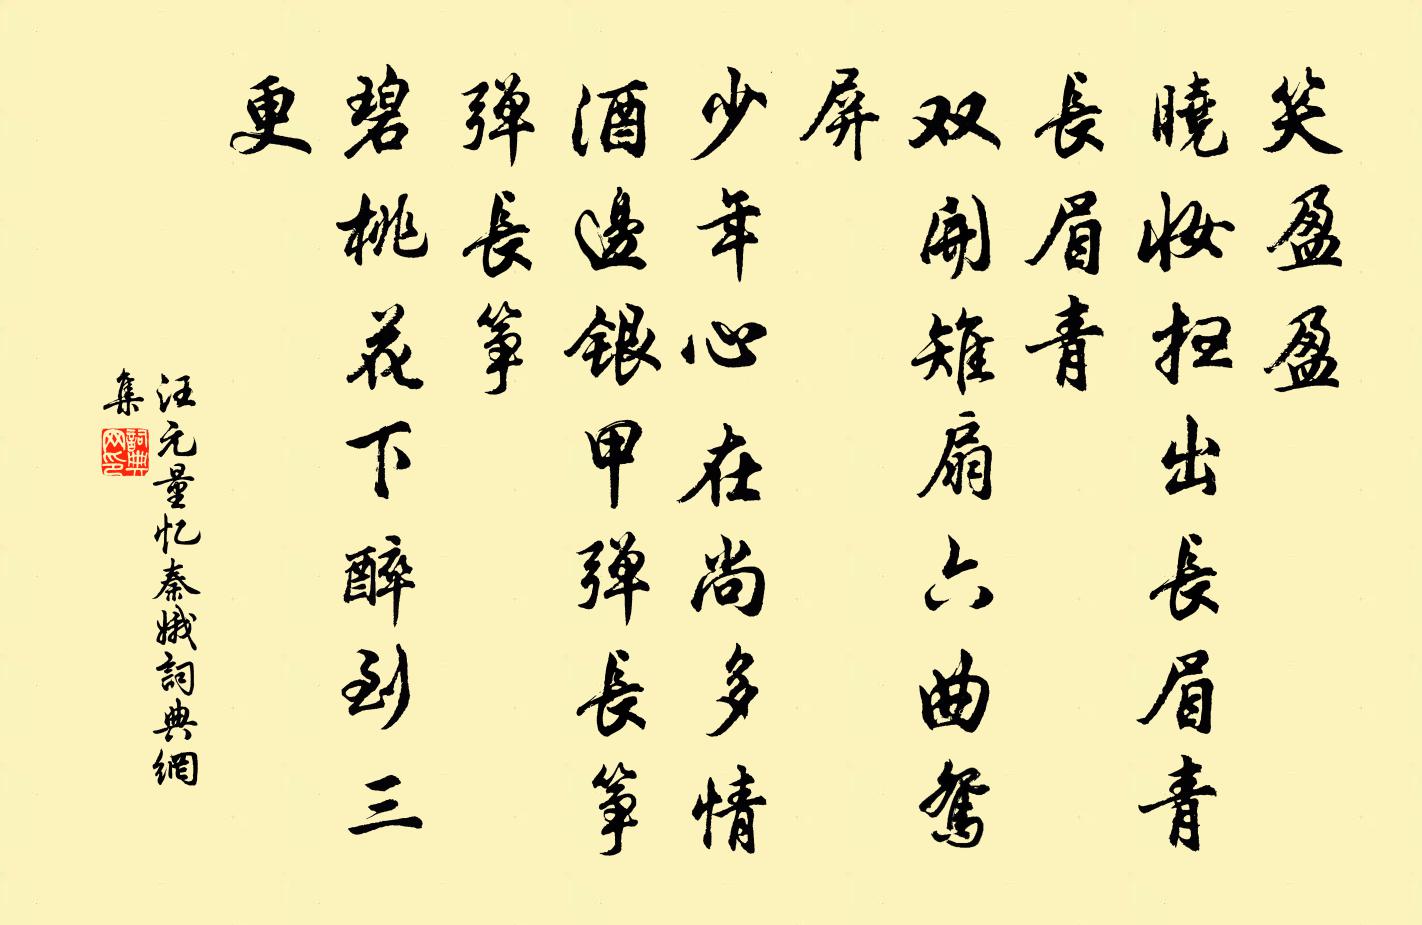 笑盈盈
曉妆扫出長眉青
長眉青
双開雉扇六曲鸳
屏
少年心在尚多情
酒邊銀甲弹長筝
弹長筝
碧桃花下醉到三
更
汪元量忆秦娥詞典網
集
詞典网印